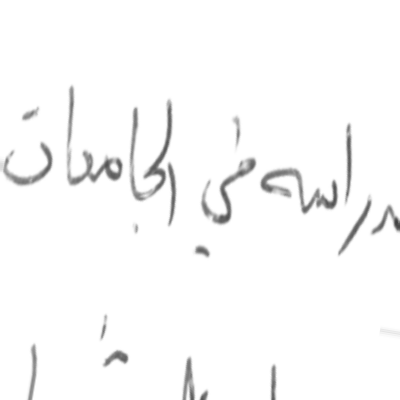 دراسه في الجامعات